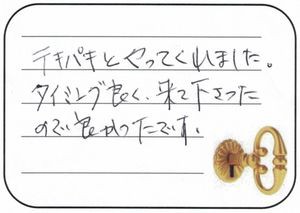 テキパキとやってくれました。
タイミング良く、来て下さった
ので良かったです。